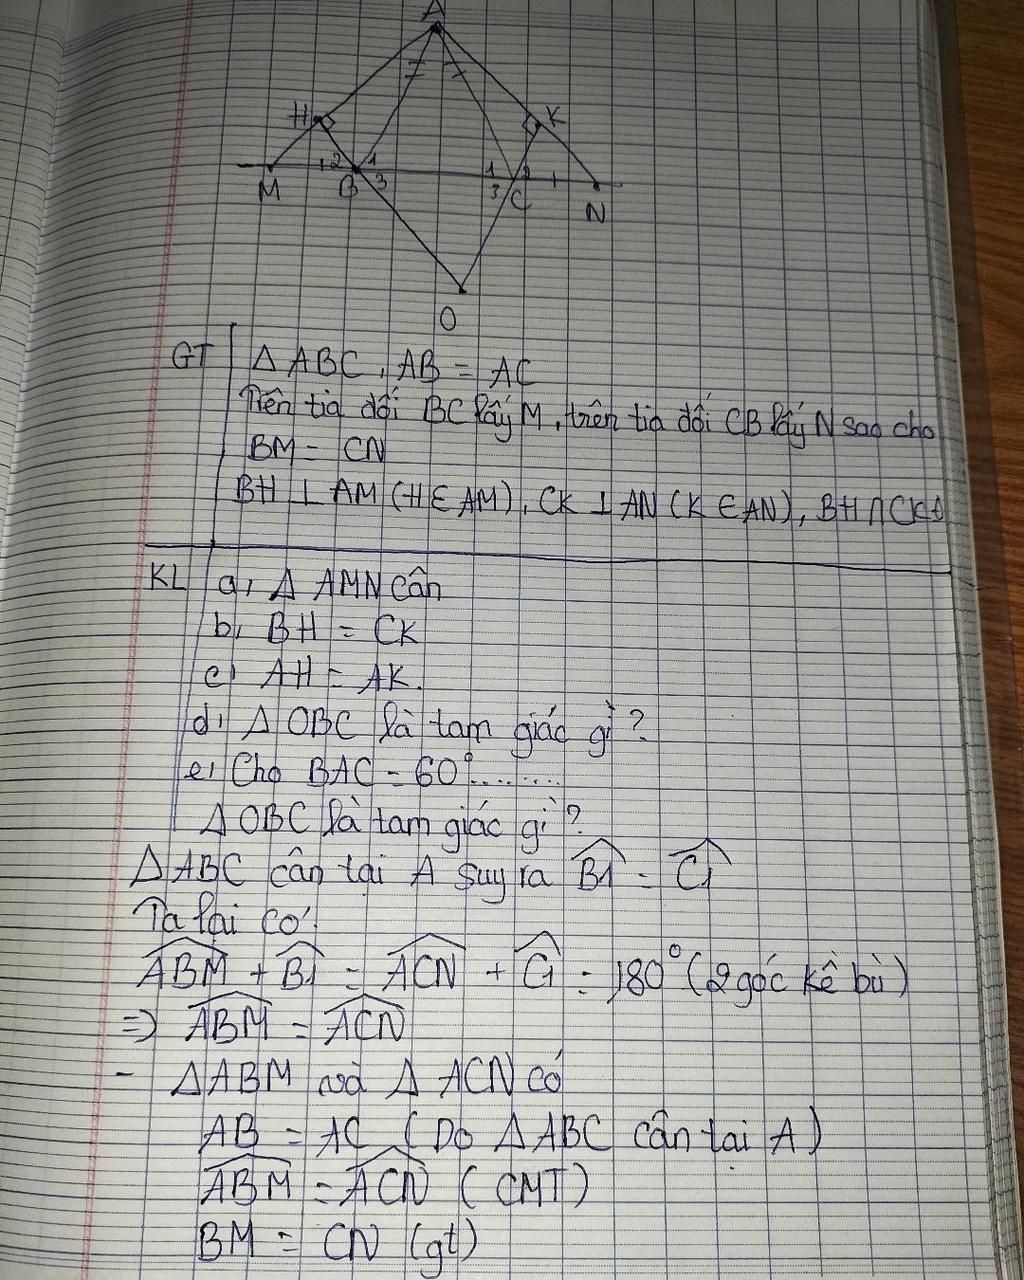 A
H K
2 1 1 2
M B 3 3 C N
O
GT Δ ABC, AB = AC
Trên tia đối BC lấy M, trên tia đối CB lấy N sao cho
BM = CN
BH ⊥ AM (H ∈ AM), CK ⊥ AN (K ∈ AN), BH ∩ CK
KL a, Δ AMN cân
b, BH = CK
c, AH = AK.
d, Δ OBC là tam giác gì?
e, Cho BAC = 60°........
Δ OBC là tam giác gì?
Δ ABC cân tại A suy ra B̂1 = Ĉ1
Ta lại có:
\widehat{ABM} + \widehat{B1} = \widehat{ACN} + \widehat{C1} = 180° (2 góc kê bù)
=> \widehat{ABM} = \widehat{ACN}
- Δ ABM và Δ ACN có
AB = AC (Do Δ ABC cân tại A)
\widehat{ABM} = \widehat{ACN} (CMT)
BM = CN (gt)